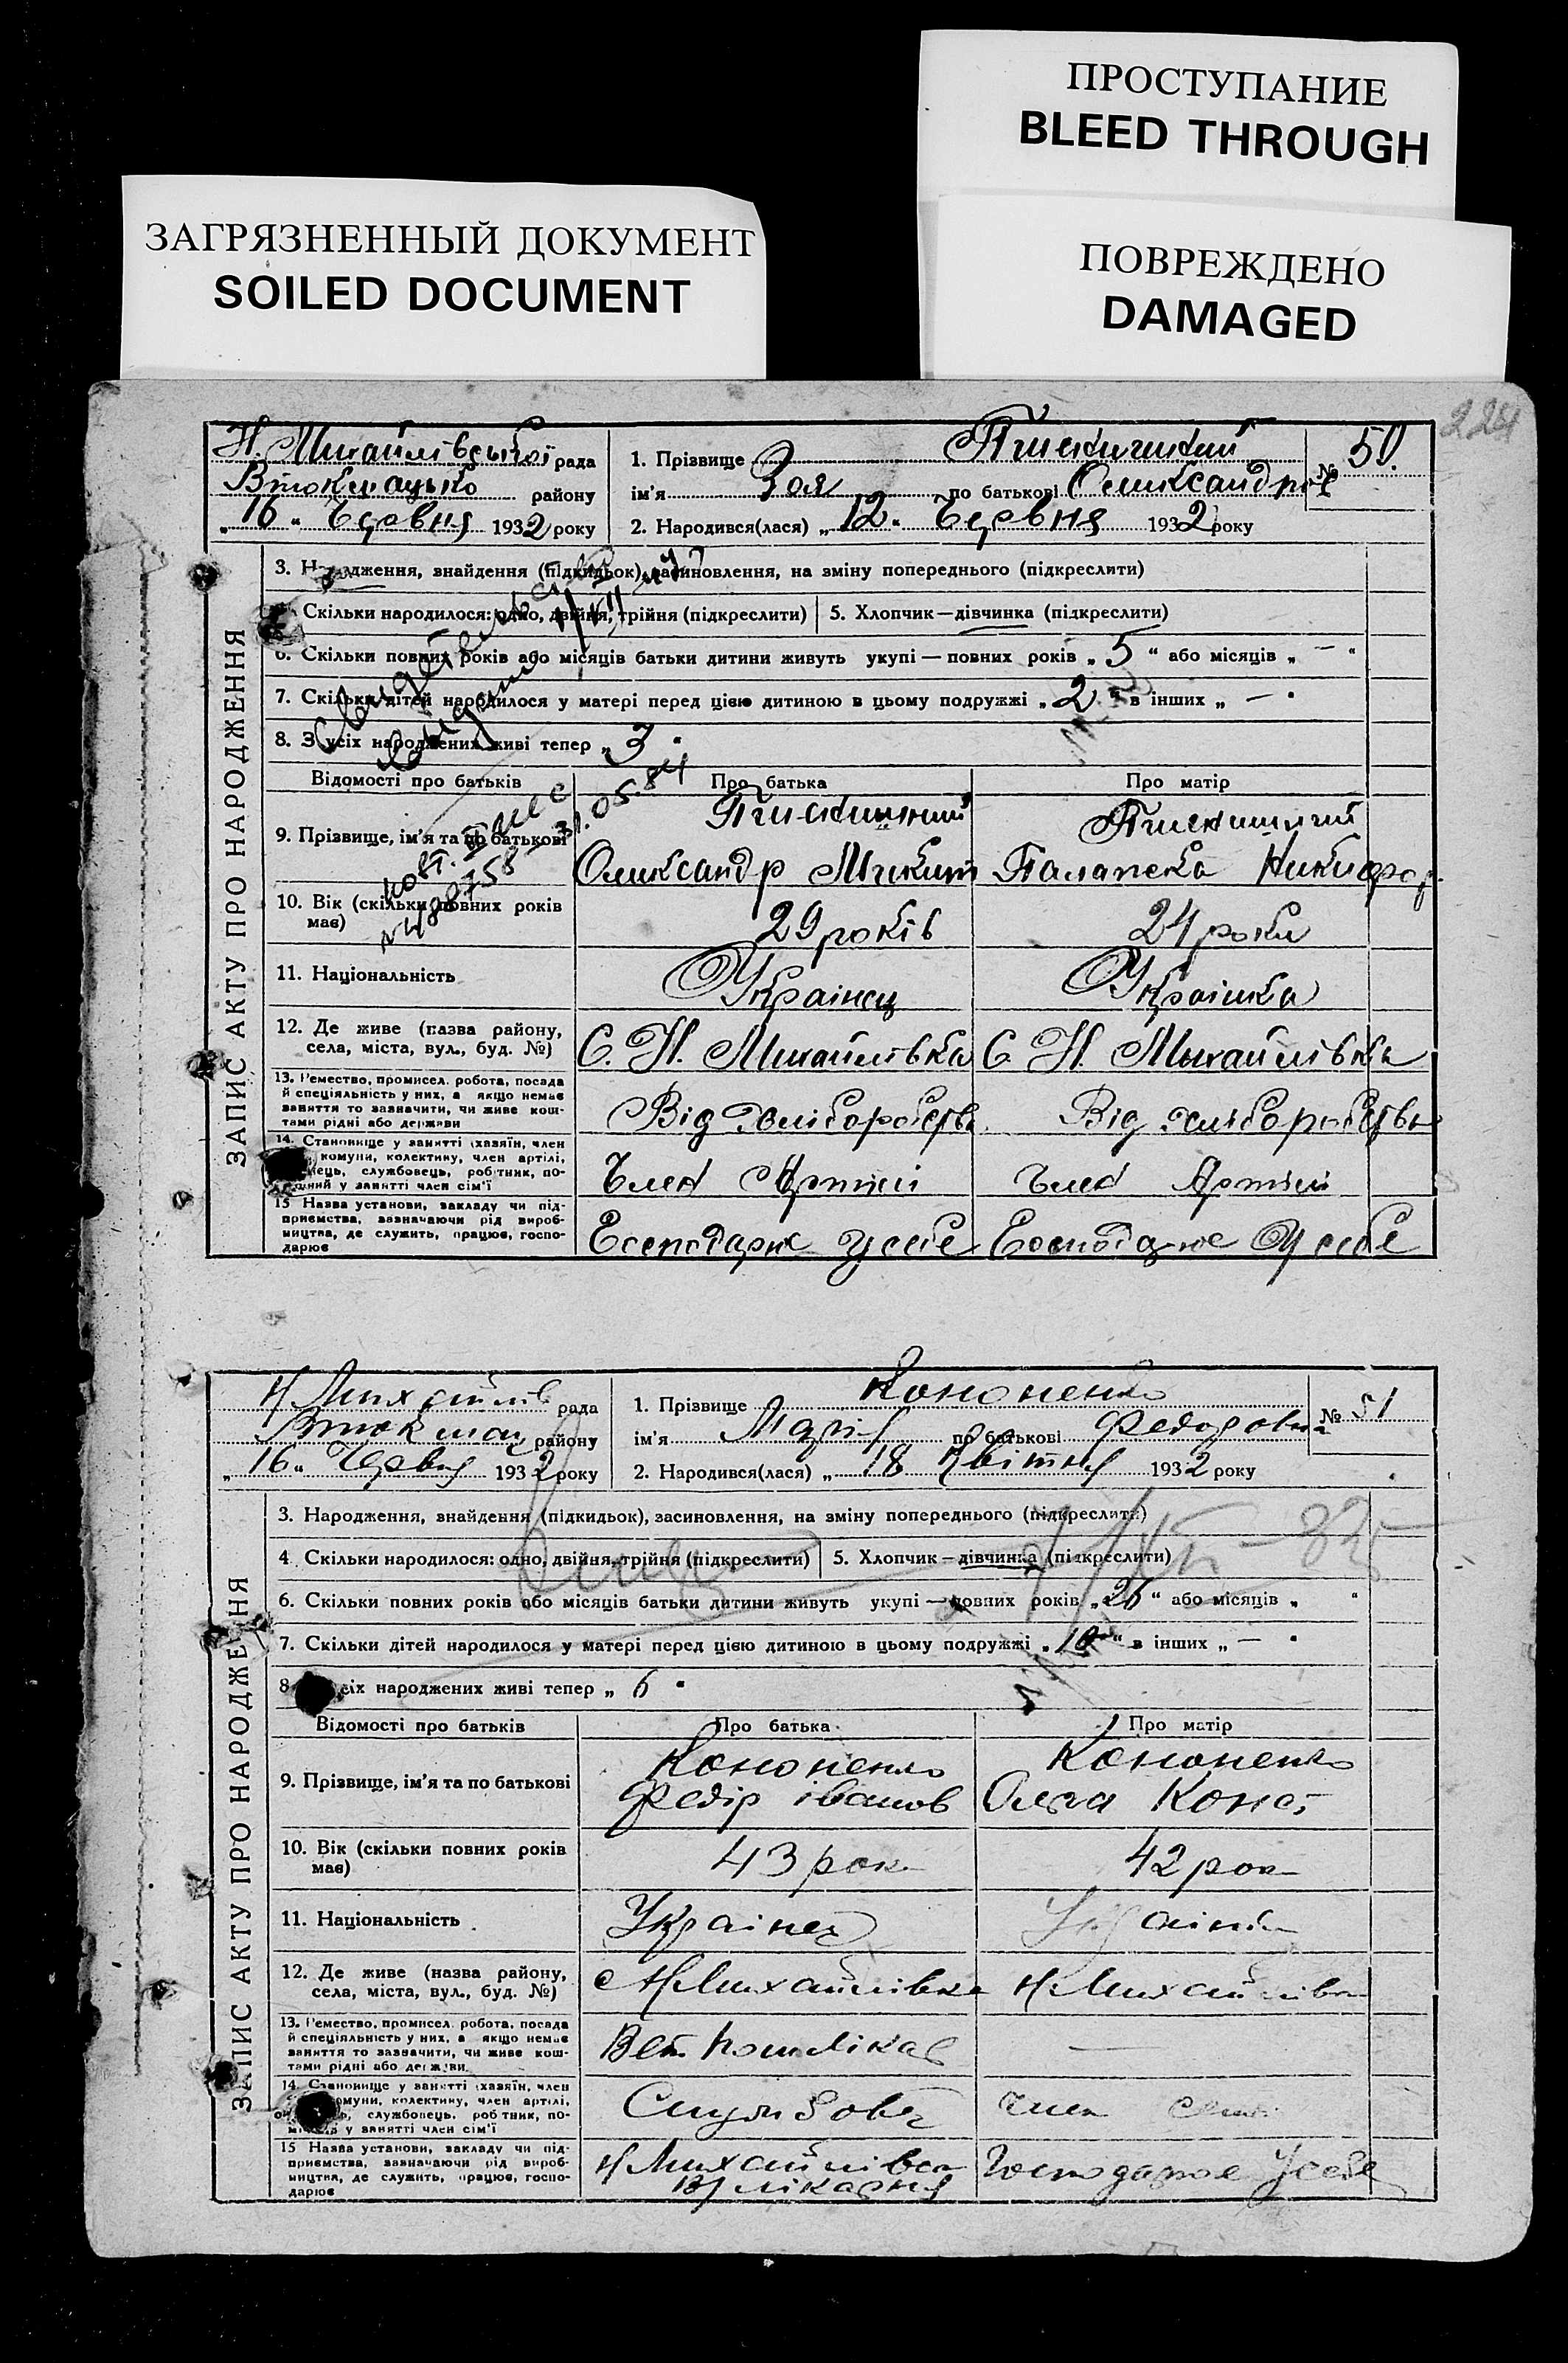 ПРОСТУПАНИЕ
BLEED THROUGH
ЗАГРЯЗНЕННЫЙ ДОКУМЕНТ
SOILED DOCUMENT
ПОВРЕЖДЕНО
DAMAGED
224
ЗАПИС АКТУ ПРО НАРОДЖЕННЯ
Н. Михайлівської рада
району
„16“ Червня 1932 року
1. Прізвище
№ 50.
ім'я Зоя по батькові Олександров
2. Народився(лася) „12“ Червня 1932 року
3. Народження, знайдення (підкидьок), засиновлення, на зміну попереднього (підкреслити)
Скільки народилося: одно, двійня, трійня (підкреслити) 5. Хлопчик — дівчинка (підкреслити)
6. Скільки повних років або місяців батьки дитини живуть укупі — повних років „5“ або місяців „—“
7. Скільки дітей народилося у матері перед цією дитиною в цьому подружжі „2“ в інших „—“
8. З усіх народжених живі тепер „3“
31.05.84
Відомості про батьків Про батька Про матір
9. Прізвище, ім'я та по батькові
Олександр Палажка
10. Вік (скільки повних років має) 29 років 24 роки
11. Національність Українец Українка
12. Де живе (назва району, села, міста, вул., буд. №) С. Н. Михайлівка С. Н. Михайлівка
13. Ремество, промисел, робота, посада
й спеціяльність у них, а якщо немає
заняття то зазначити, чи живе кош-
тами рідні або держави
Від хліборобства Від хліборобства
14. Становище у занятті (хазяїн, член
комуни, колективу, член артілі,
службовець, робітник, по-
у занятті член сім'ї
Член Артілі Член Артілі
15 Назва установи, закладу чи під-
приємства, зазначаючи рід вироб-
ництва, де служить, працює, госпо-
дарює
Господарює у себе Господарює у себе
ЗАПИС АКТУ ПРО НАРОДЖЕННЯ
Н Михайлів рада
району
„16“ Червня 1932 року
1. Прізвище Кононенко
№ 51
ім'я Марія по батькові Федоровна
2. Народився(лася) „18 Квітня 1932 року
3. Народження, знайдення (підкидьок), засиновлення, на зміну попереднього (підкреслити)
4 Скільки народилося: одно, двійня, трійня (підкреслити) 5. Хлопчик — дівчинка (підкреслити)
6. Скільки повних років або місяців батьки дитини живуть укупі — повних років „26“ або місяців „ “
7. Скільки дітей народилося у матері перед цією дитиною в цьому подружжі „10“ в інших „—“
8 усіх народжених живі тепер „6“
Відомості про батьків Про батька Про матір
9. Прізвище, ім'я та по батькові
Кононенко Кононенко
Федір іванов Ольга Конст
10. Вік (скільки повних років має) 43 рок 42 рок
11. Національність Українец Українка
12. Де живе (назва району, села, міста, вул., буд. №) с Н Михайлівка Н Михайлівка
13. Ремество, промисел, робота, посада
й спеціяльність у них, а якщо немає
заняття то зазначити, чи живе кош-
тами рідні або держави
Вет. —
14. Становище у занятті (хазяїн, член
комуни, колективу, член артілі,
службовець, робітник, по-
у занятті член сім'ї
Службовец член
15 Назва установи, закладу чи під-
приємства, зазначаючи рід вироб-
ництва, де служить, працює, госпо-
дарює
Н Михайлівка Господарює у себе
лікарня